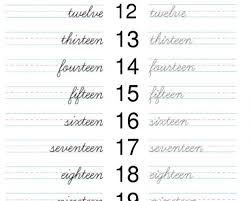 twelve 12 twelve
thirteen 13 thirteen
fourteen 14 fourteen
fifteen 15 fifteen
sixteen 16 sixteen
seventeen 17 seventeen
eighteen 18 eighteen
nineteen 19 nineteen